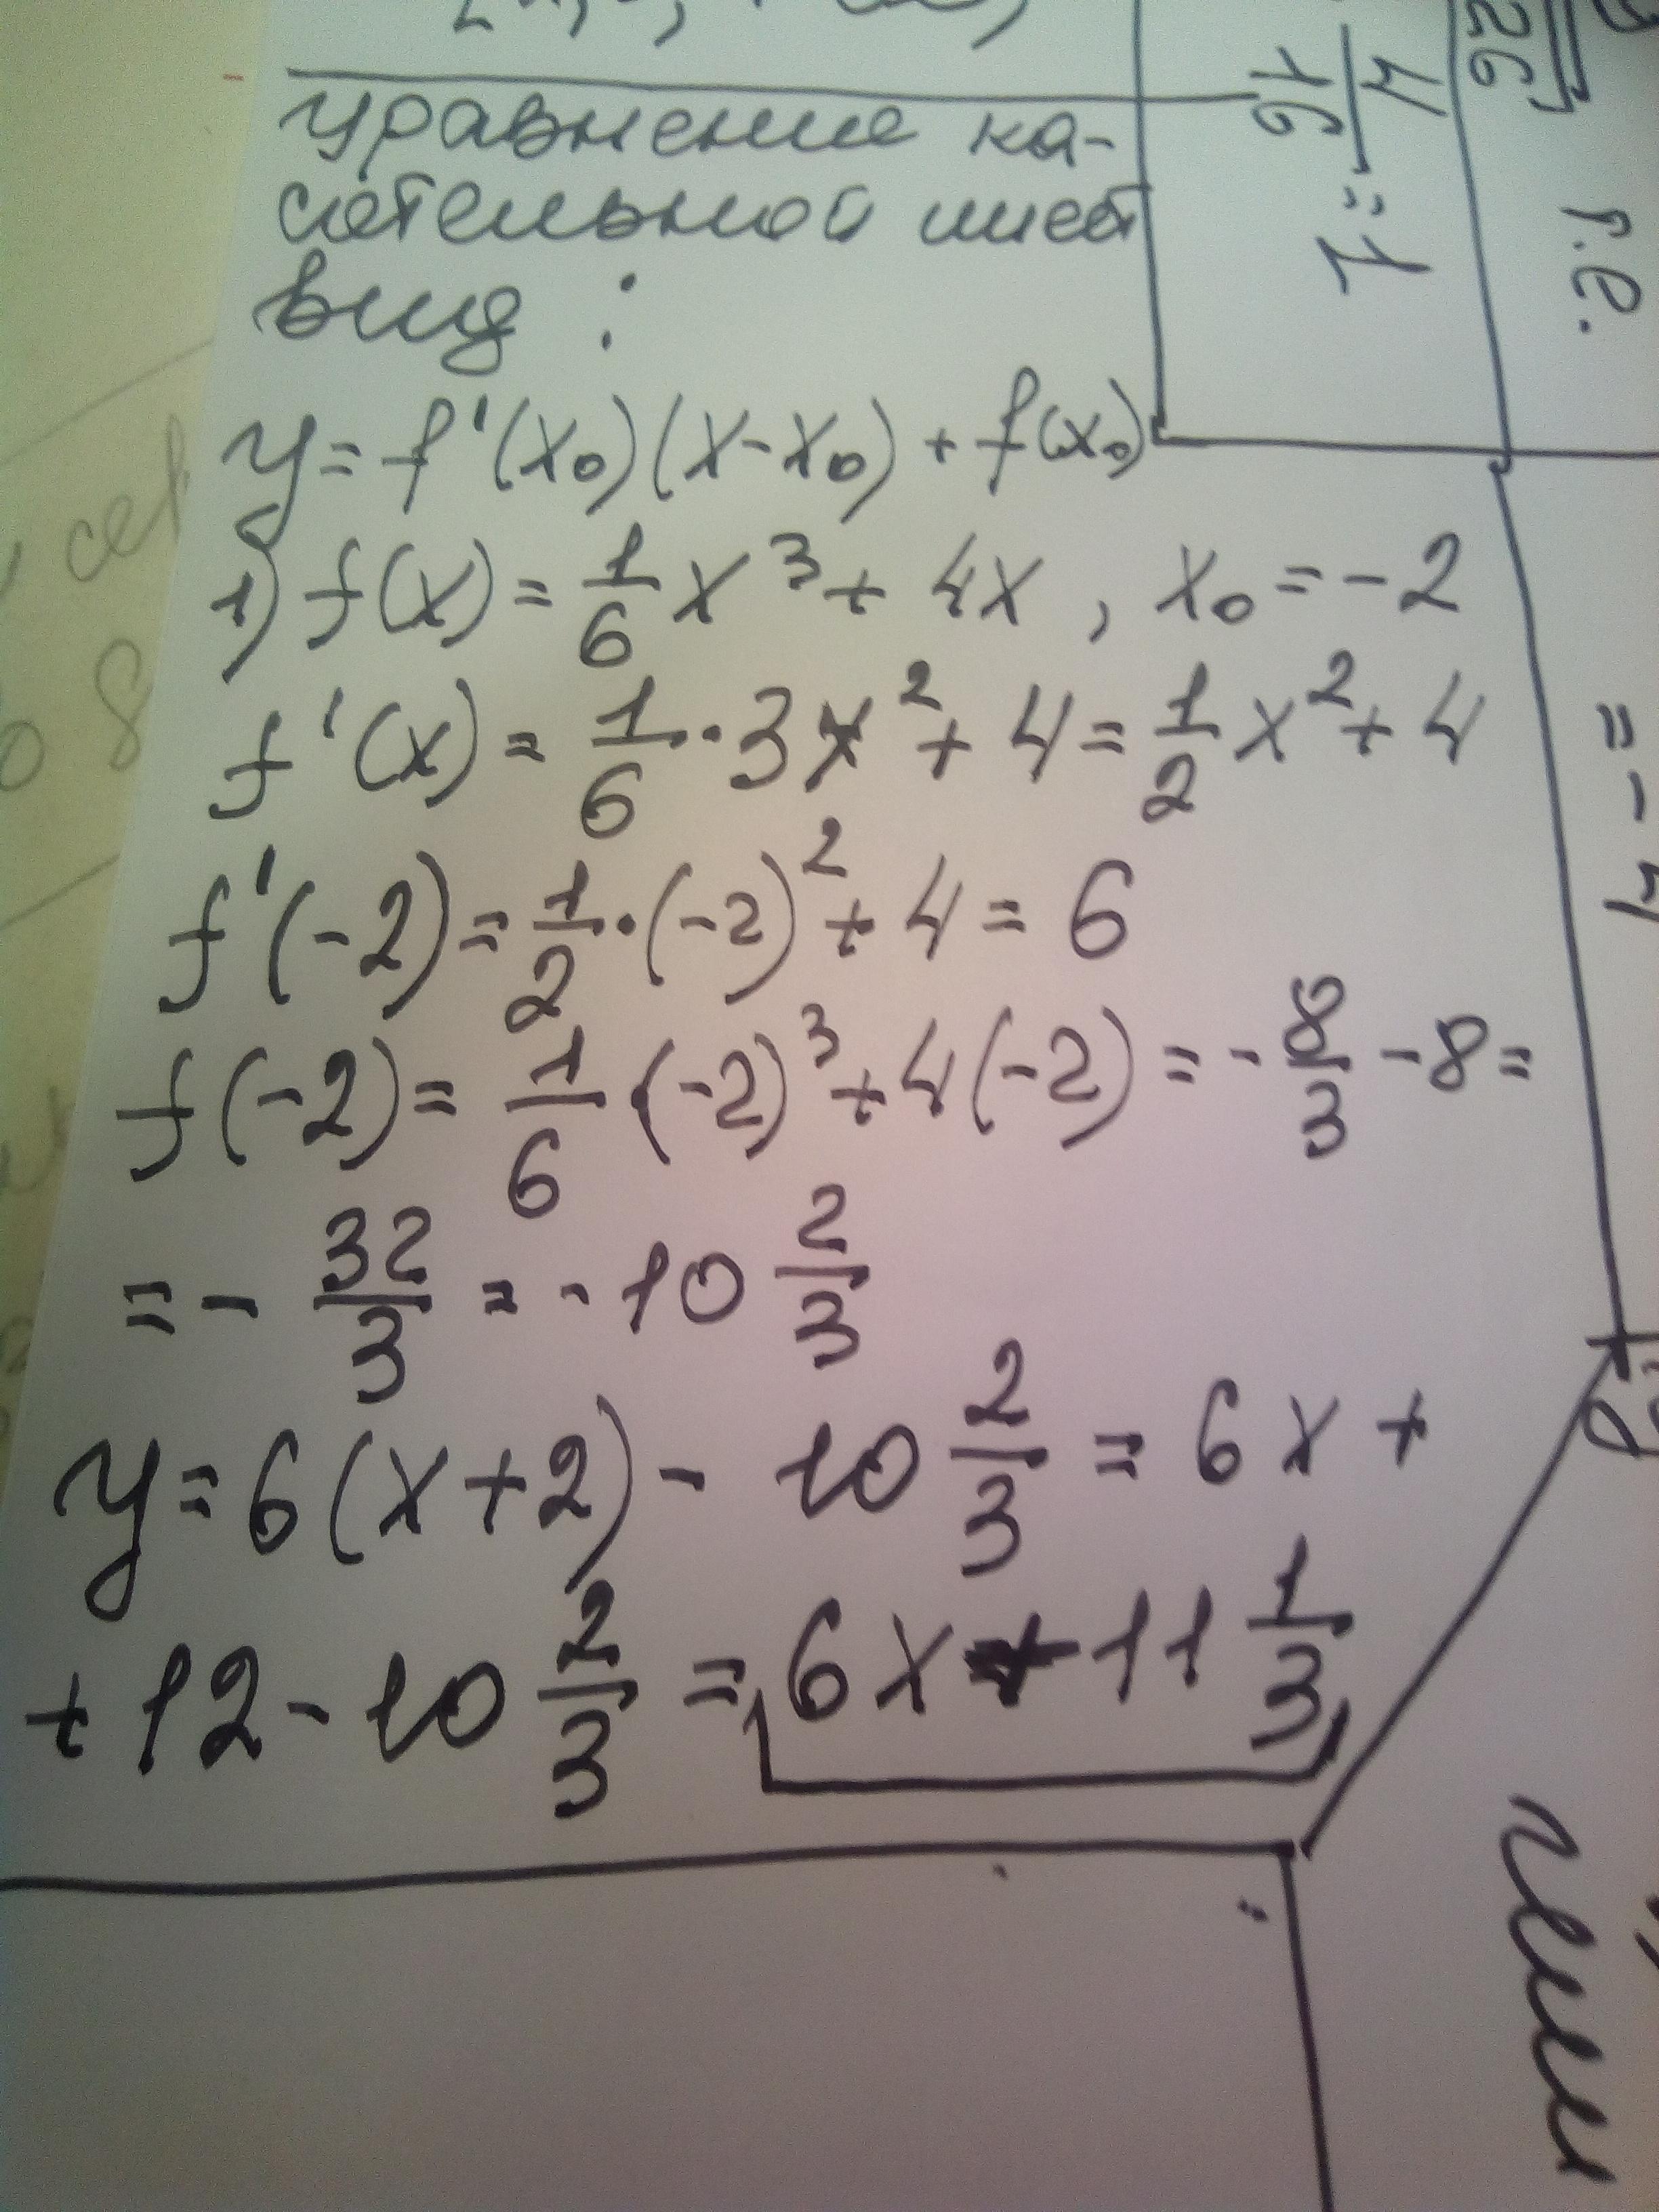 уравнение ка-
сательной имеет
вид :
y = f'(x₀)(x-x₀) + f(x₀)
1) f(x) = 1/6 x³ + 4x , x₀ = -2
f'(x) = 1/6 · 3x² + 4 = 1/2 x² + 4
f'(-2) = 1/2 · (-2)² + 4 = 6
f(-2) = 1/6 · (-2)³ + 4(-2) = - 8/3 - 8 =
= - 32/3 = - 10 2/3
y = 6(x+2) - 10 2/3 = 6x +
+ 12 - 10 2/3 = 6x + 11 1/3
4/16 = 1
26
т.е.
= - 4